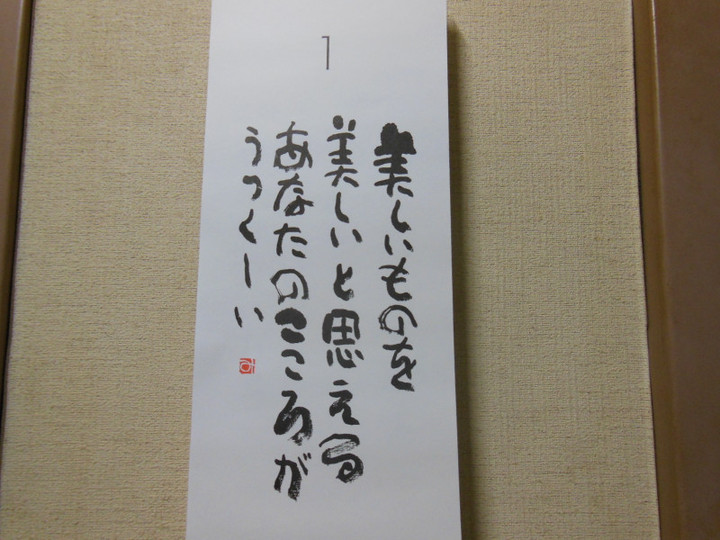 1
美しいものを
美しいと思える
あなたのこころが
うつくしい